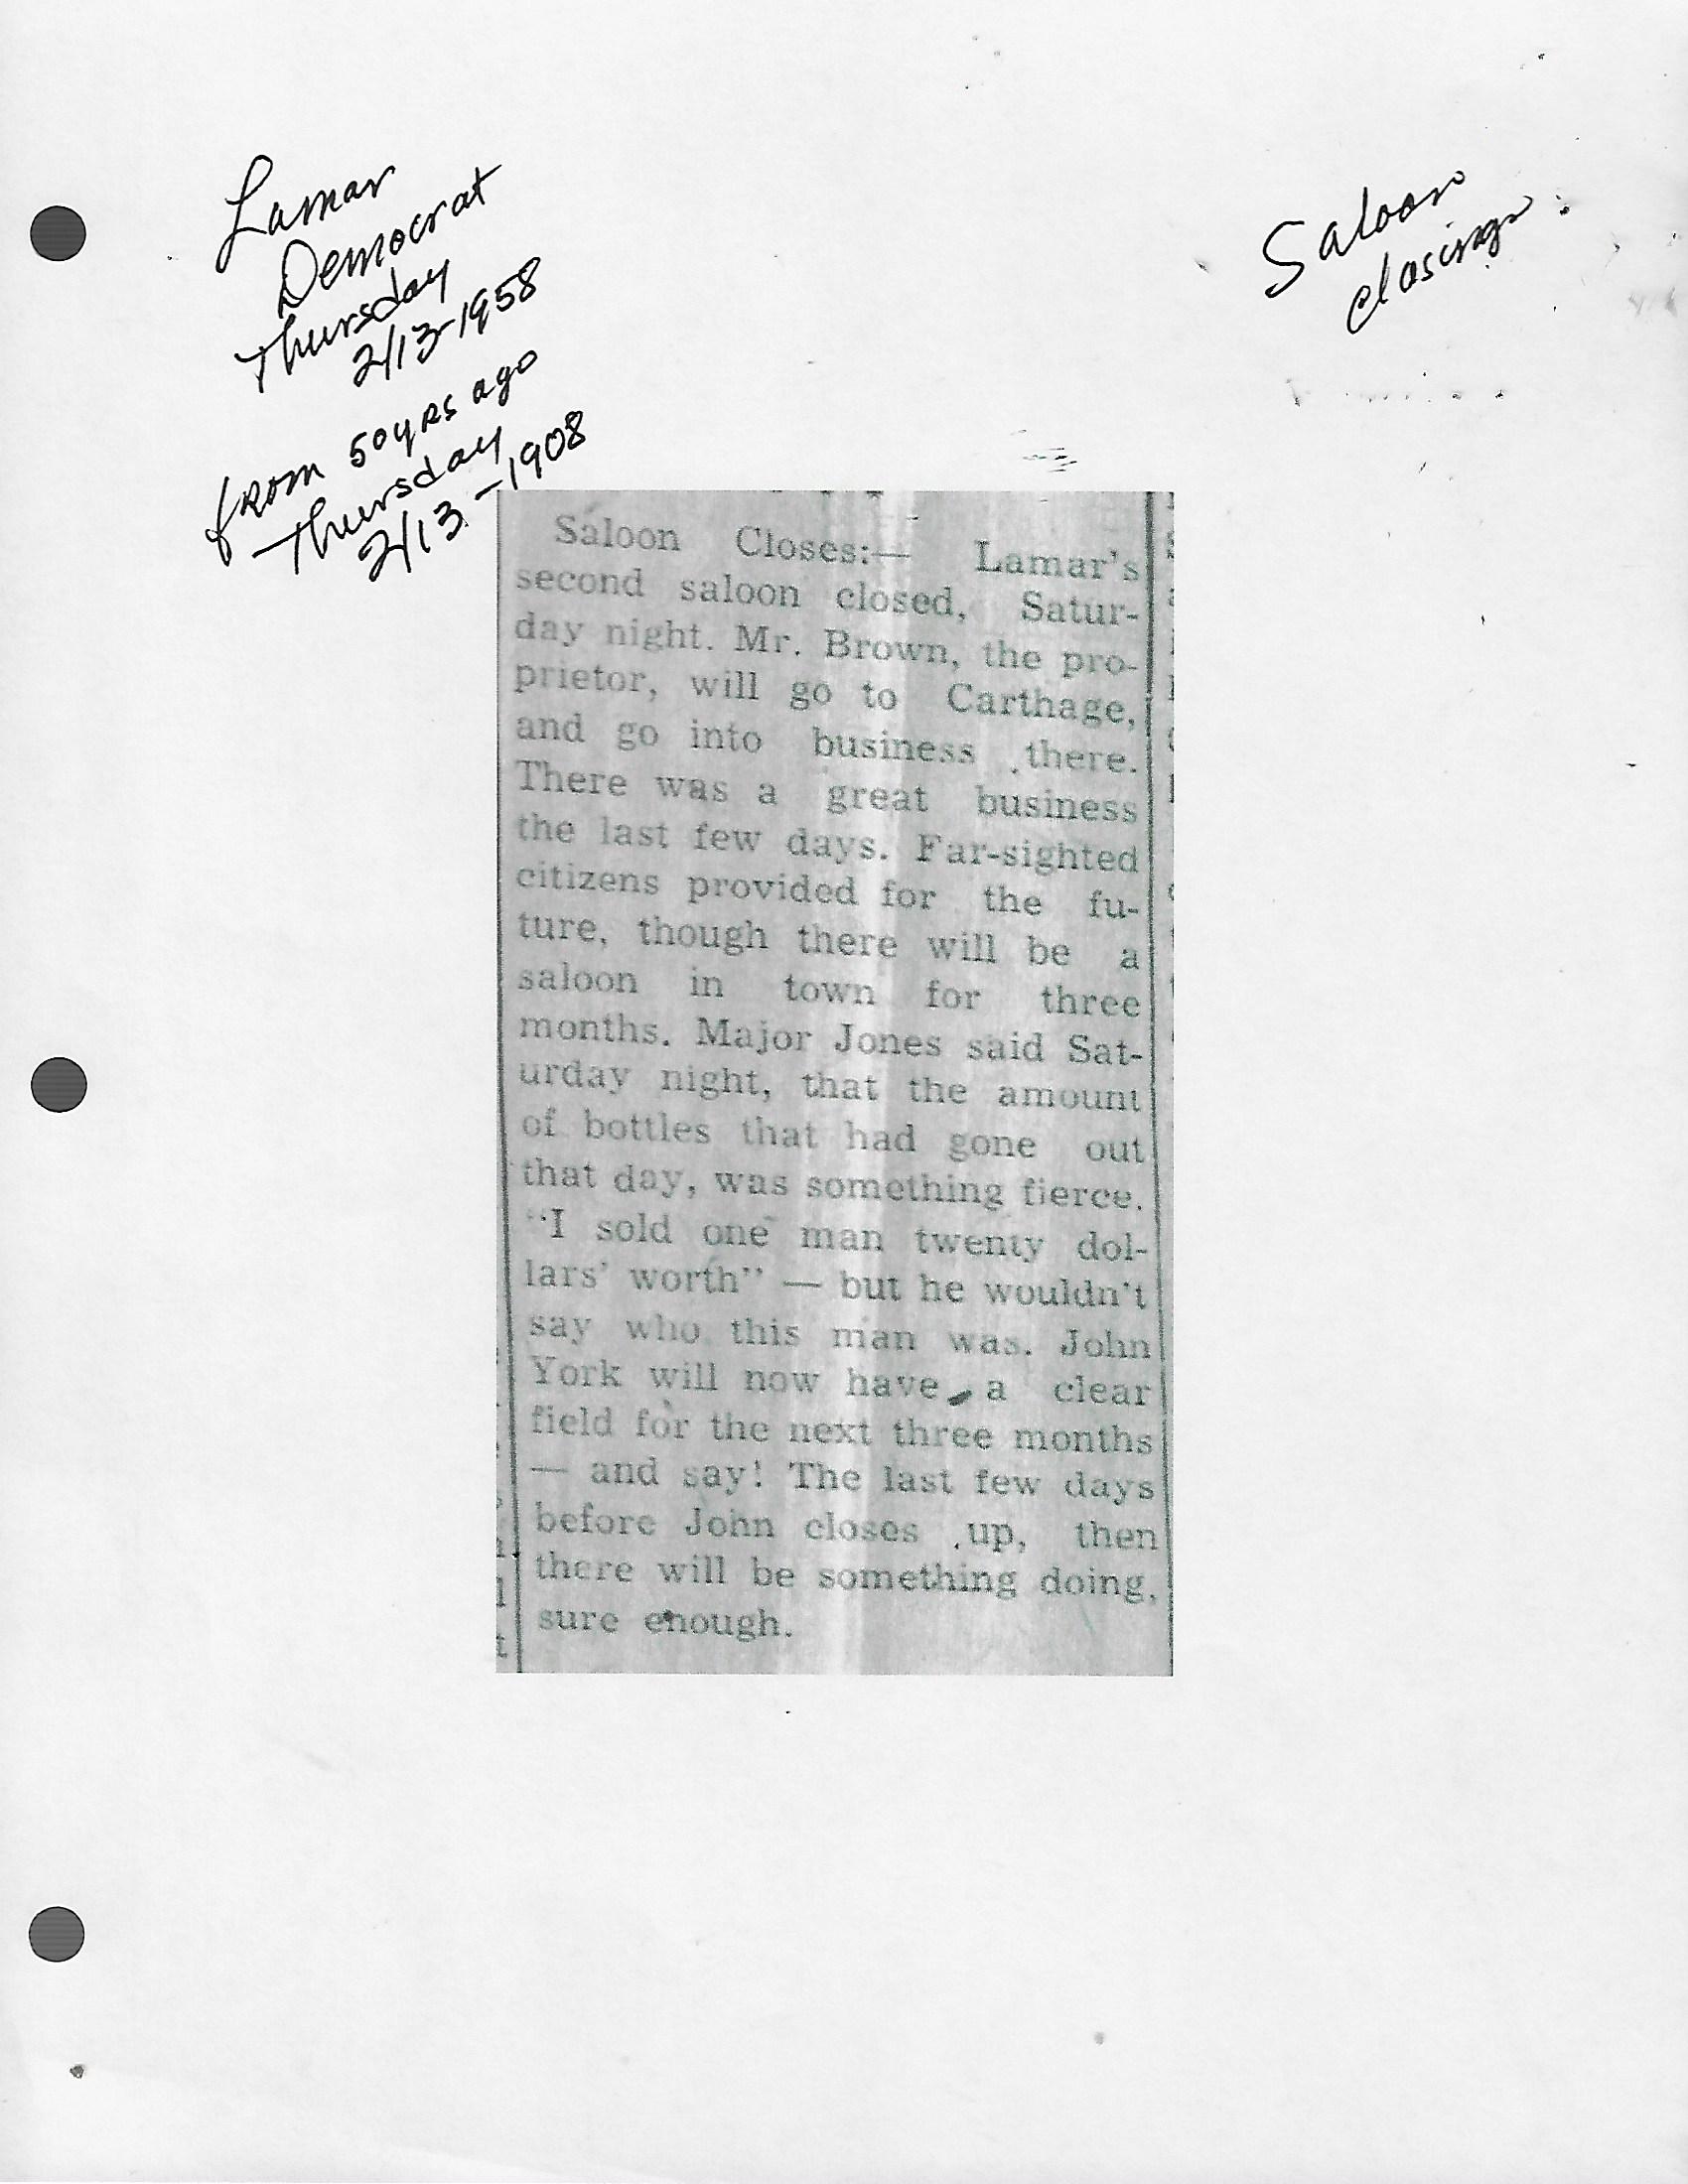 Lamar
Democrat
Thursday
2/13-1958
from 50 yrs ago
Thursday
2/13-1908
Saloon
closings.
Saloon Closes:— Lamar's
second saloon closed, Satur-
day night. Mr. Brown, the pro-
prietor, will go to Carthage,
and go into business there.
There was a great business
the last few days. Far-sighted
citizens provided for the fu-
ture, though there will be a
saloon in town for three
months. Major Jones said Sat-
urday night, that the amount
of bottles that had gone out
that day, was something fierce.
"I sold one man twenty dol-
lars' worth" — but he wouldn't
say who this man was. John
York will now have a clear
field for the next three months
— and say! The last few days
before John closes up, then
there will be something doing,
sure enough.